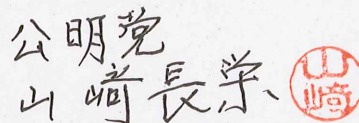 公明党
山﨑長栄
山﨑